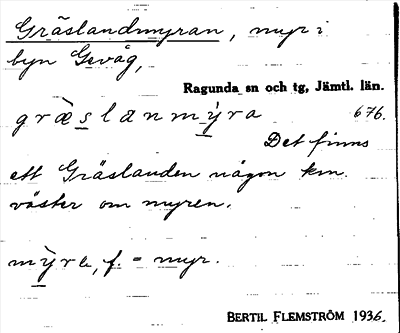 Gräslandmyran, myr i
byn Gevåg,
Ragunda sn och tg, Jämtl. län.
græ̀slanmỳra 676.
Det finns
ett Gräslanden någon km.
väster om myren.
mỳra, f. = myr.
BERTIL FLEMSTRÖM 1936.